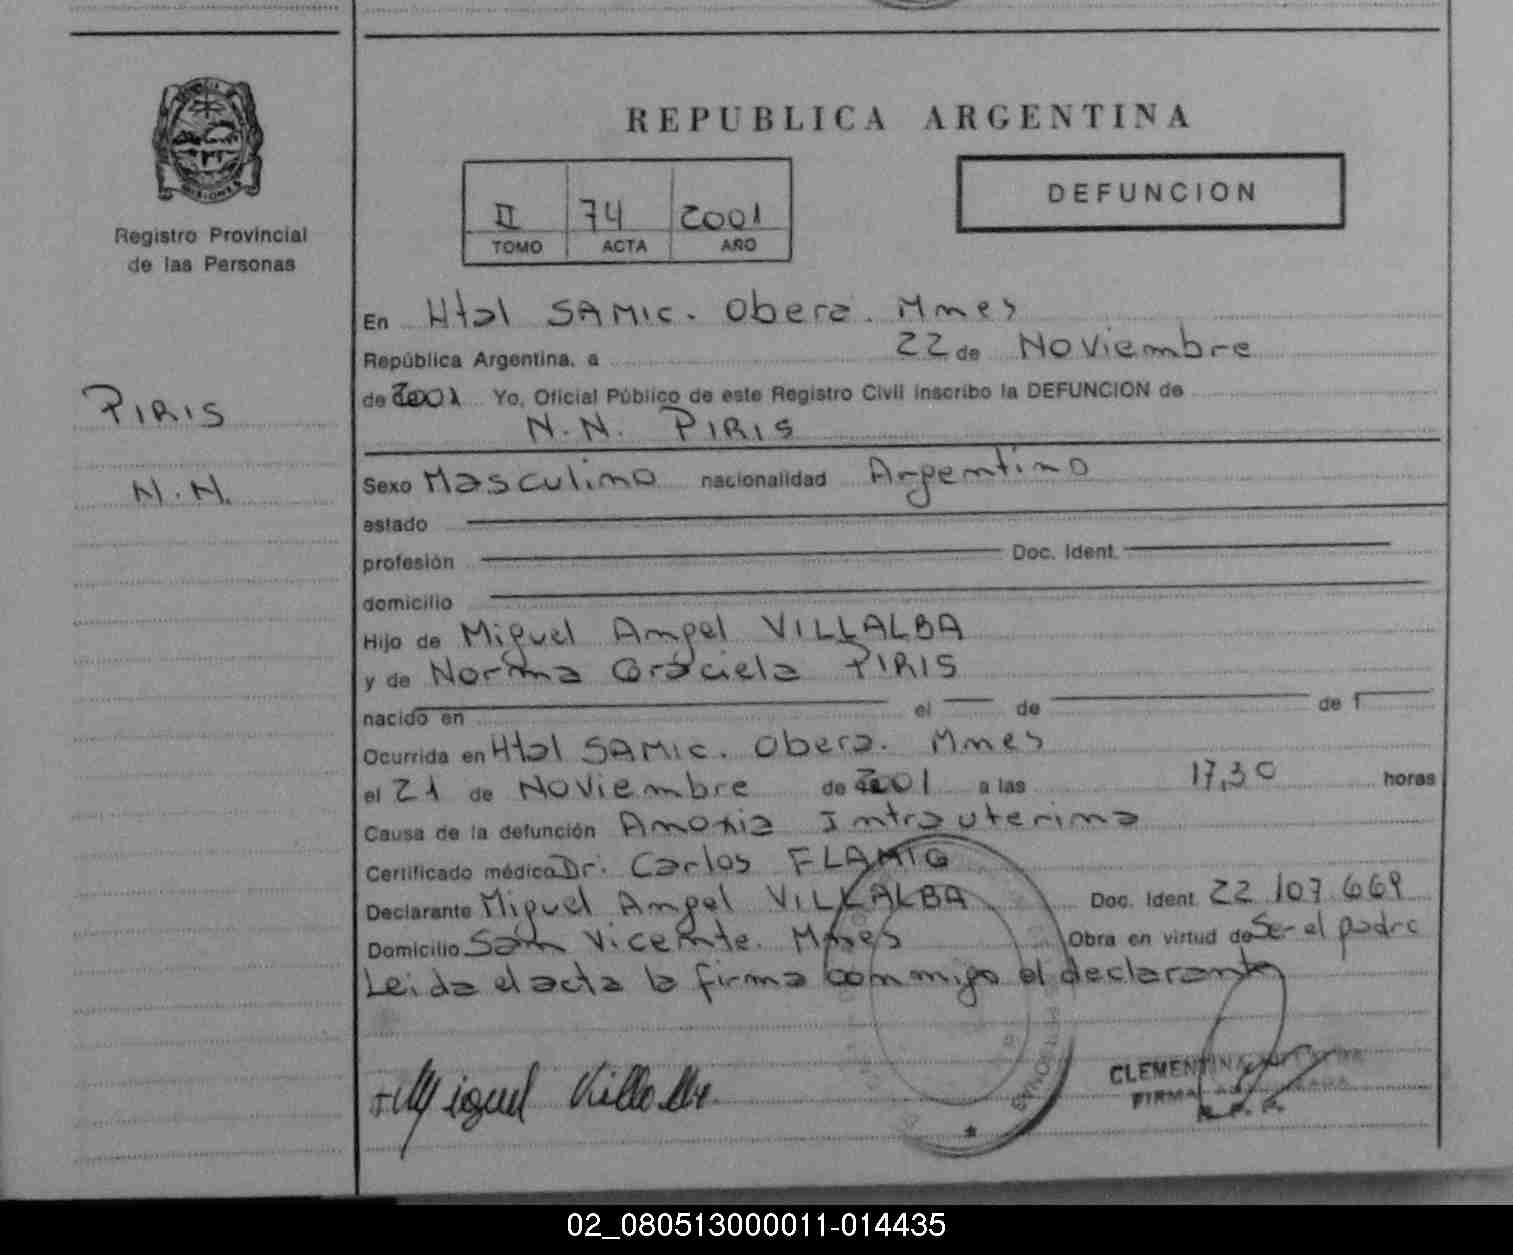 REPUBLICA ARGENTINA
DEFUNCION
II 74 2001
TOMO ACTA AÑO
MISIONES
Registro Provincial
de las Personas
PIRIS
N.N.
En Htal SAMIC. Oberá. Mnes
República Argentina, a 22 de Noviembre
de 2001 Yo, Oficial Público de este Registro Civil inscribo la DEFUNCION de
N.N. PIRIS
Sexo Masculino nacionalidad Argentino
estado
profesión Doc. Ident.
domicilio
Hijo de Miguel Angel VILLALBA
y de Norma Graciela PIRIS
nacido en el de de 1
Ocurrida en Htal SAMIC. Oberá. Mnes
el 21 de Noviembre de 2001 a las 17,30 horas
Causa de la defunción Anoxia Intrauterina
Certificado médico Dr. Carlos FLAMIG
Declarante Miguel Angel VILLALBA Doc. Ident. 22.107.669
Domicilio San Vicente. Mnes Obra en virtud de Ser el padre
Leida el acta la firma conmigo el declarante
Miguel Villalba
CLEMENTINA
FIRMA
02_080513000011-014435